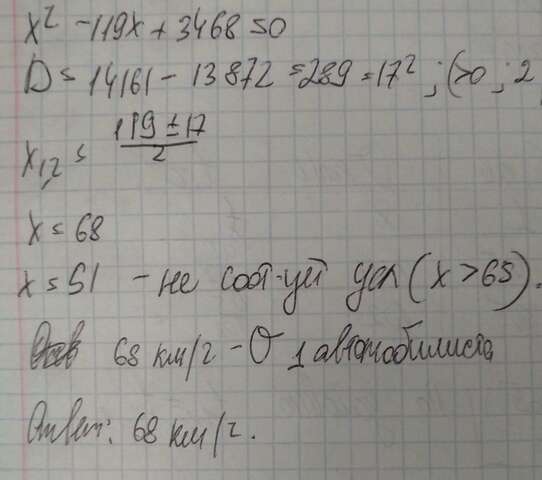 x² - 119x + 3468 = 0
D = 14161 - 13872 = 289 = 17² ; (>0 ; 2
x₁,₂ = (119 ± 17)/2
x = 68
x = 51 - не соот-ует усл (x > 65).
68 км/г - υ 1 автомобилиста
Ответ: 68 км/г.